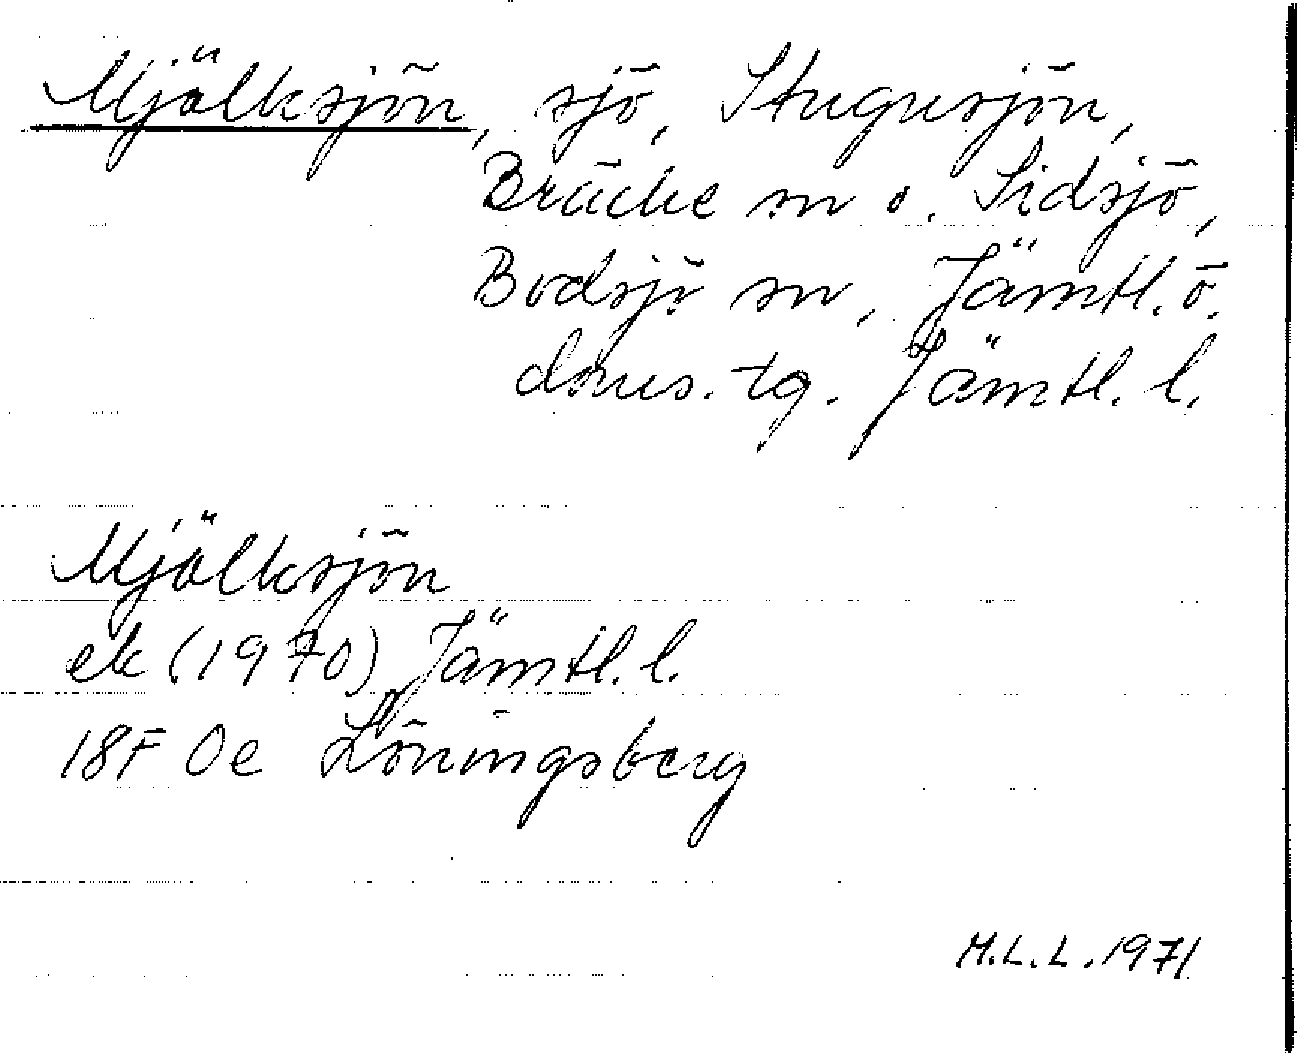 Mjölksjön, sjö, Stugusjön,
Bräcke sn o. Sidsjö,
Bodsjö sn, Jämtl. ö.
doms. tg. Jämtl. l.
Mjölksjön
ek (1970) Jämtl. l.
18F 0e Löningsberg
M.L.L. 1971